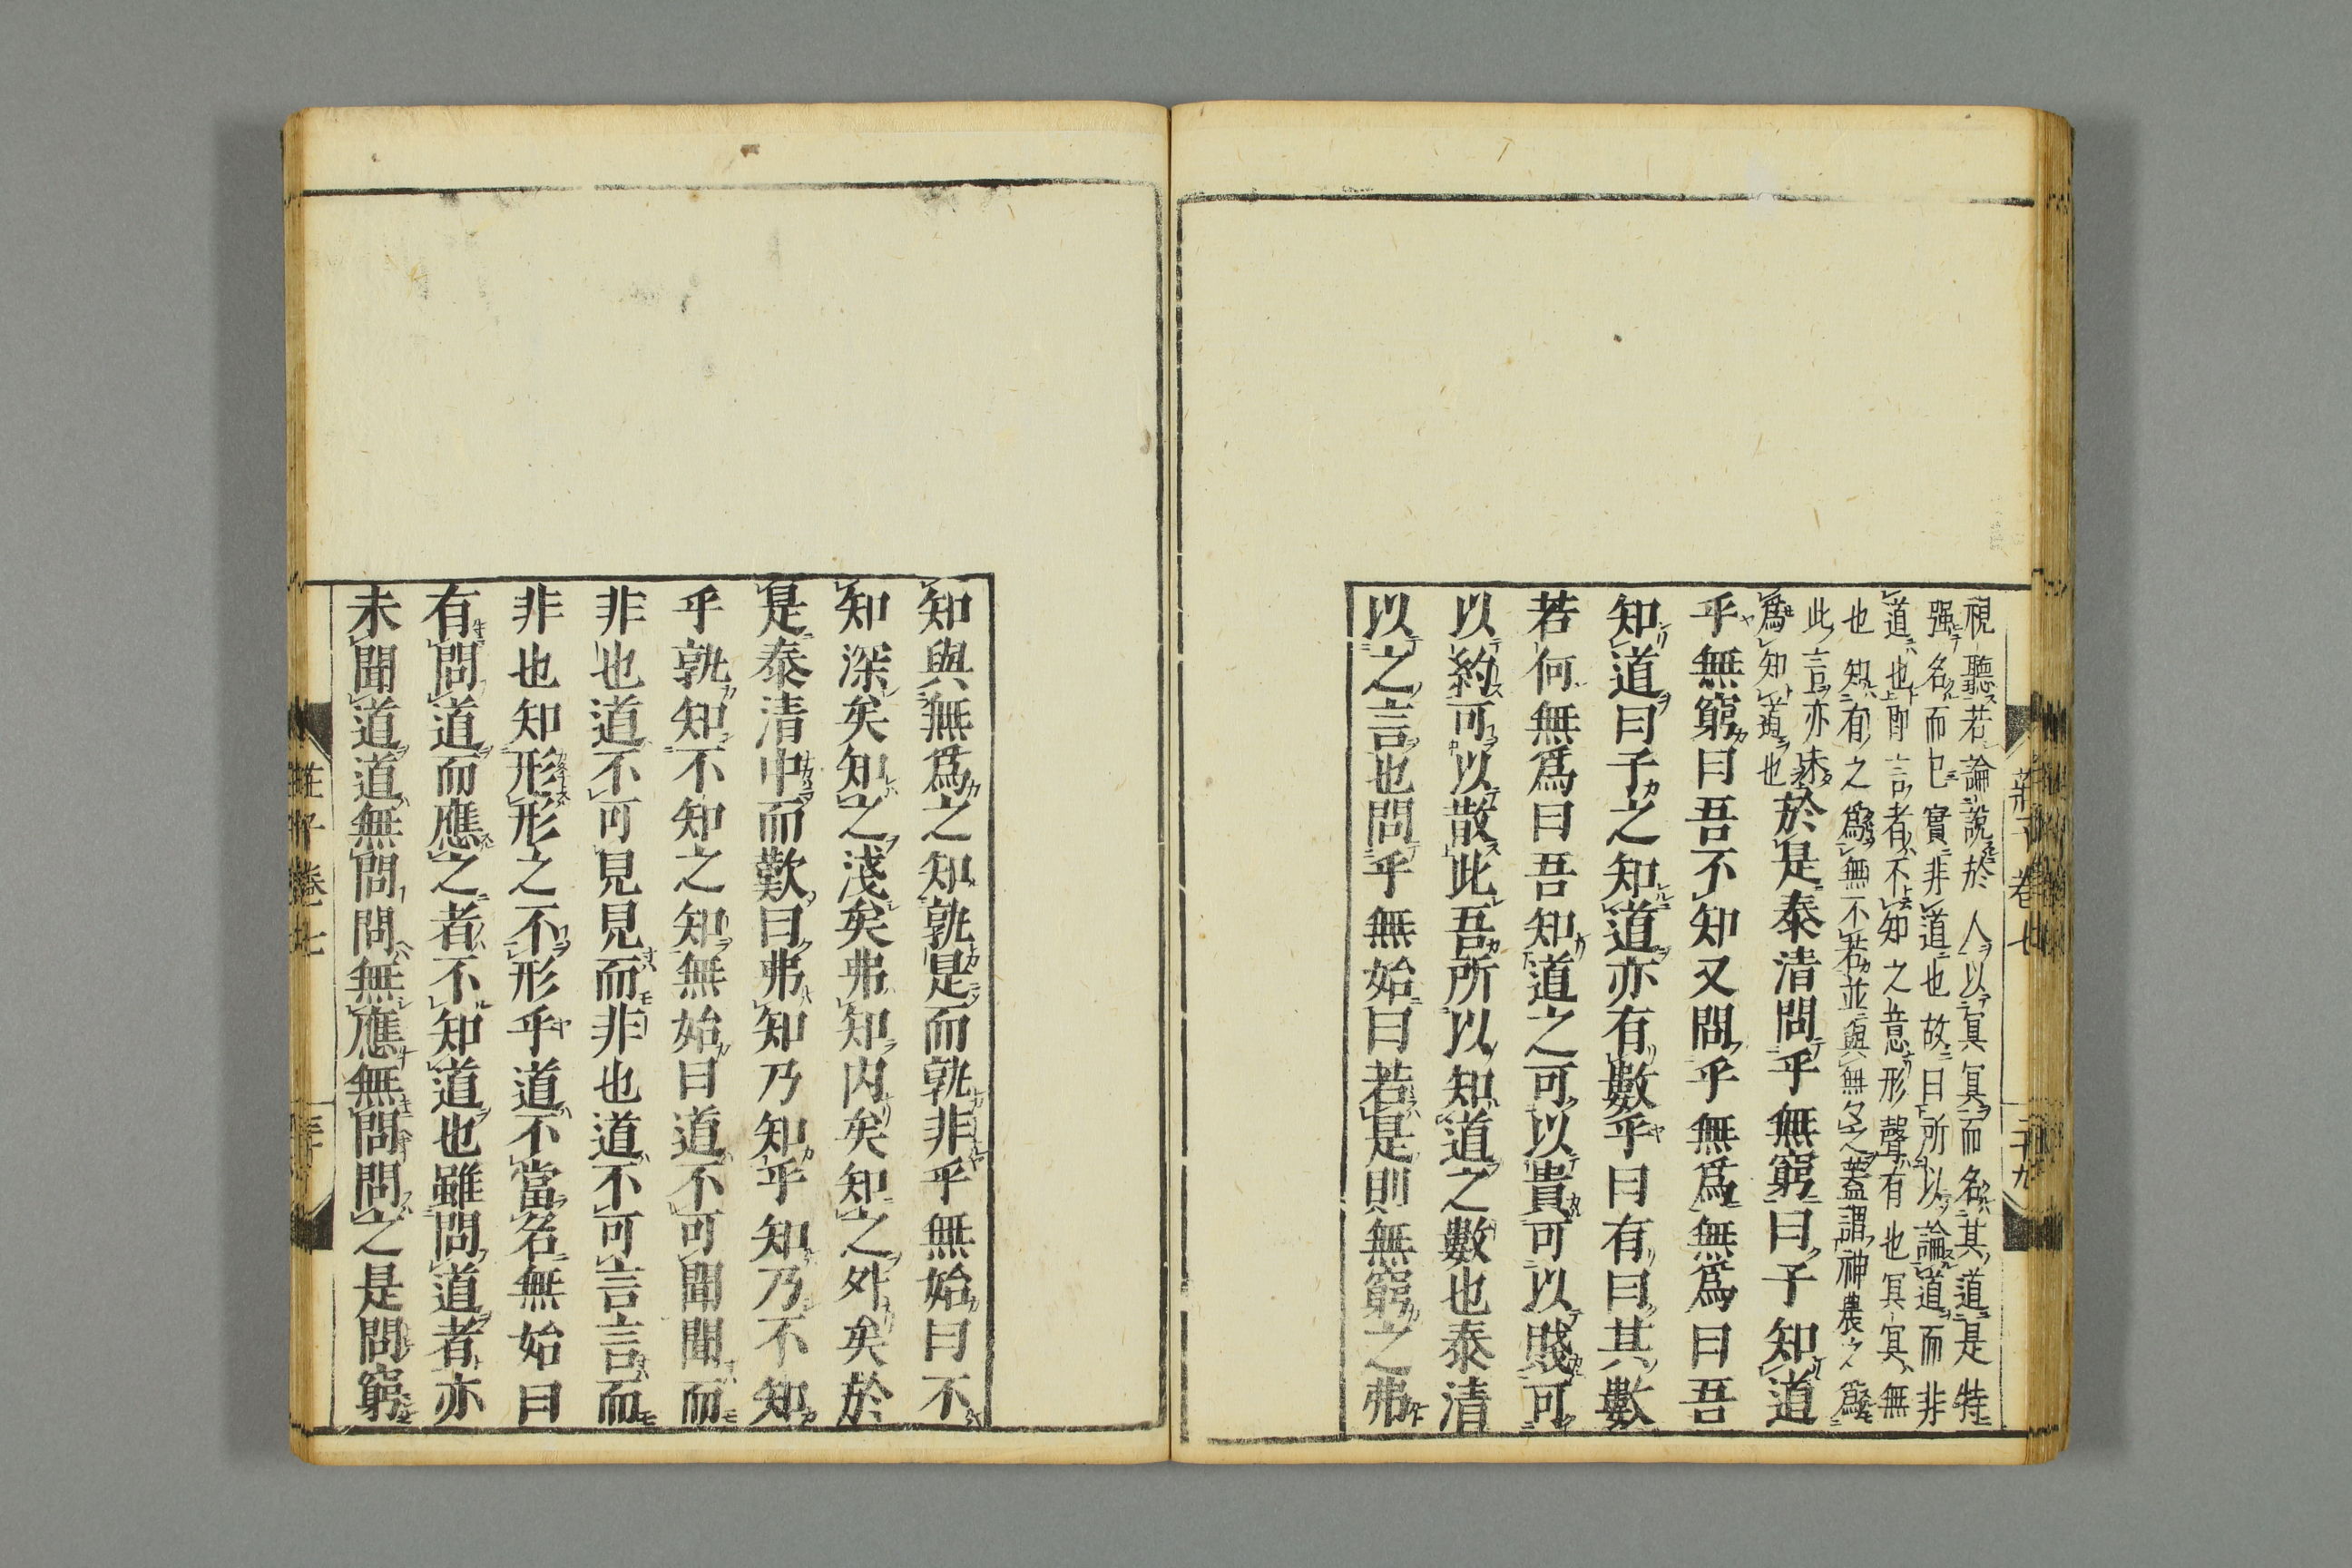 視聽若論說於人以冥冥而名其道是特
强名而已實非道也故曰所以論道而非
道也卽言者不知之意形聲有也冥冥無
也知有之爲無不若並與無名之蓋謂神農之爲
此言亦未
爲知道也
於是泰清問乎無窮曰子知道
乎無窮曰吾不知又問乎無爲無爲曰吾
知道曰子之知道亦有數乎曰有曰其數
若何無爲曰吾知道之可以貴可以賤可
以約可以散此吾所以知道之數也泰清
以之言也問乎無始曰若是則無窮之弗
莊子卷七
二十九
知與無爲之知孰是而孰非乎無始曰不
知深矣知之淺矣弗知内矣知之外矣於
是泰清中而歎曰弗知乃知乎知乃不知
乎孰知不知之知無始曰道不可聞聞而
非也道不可見見而非也道不可言言而
非也知形形之不形乎道不當名無始曰
有問道而應之者不知道也雖問道者亦
未聞道道無問問無應無問問之是問窮
莊子卷七